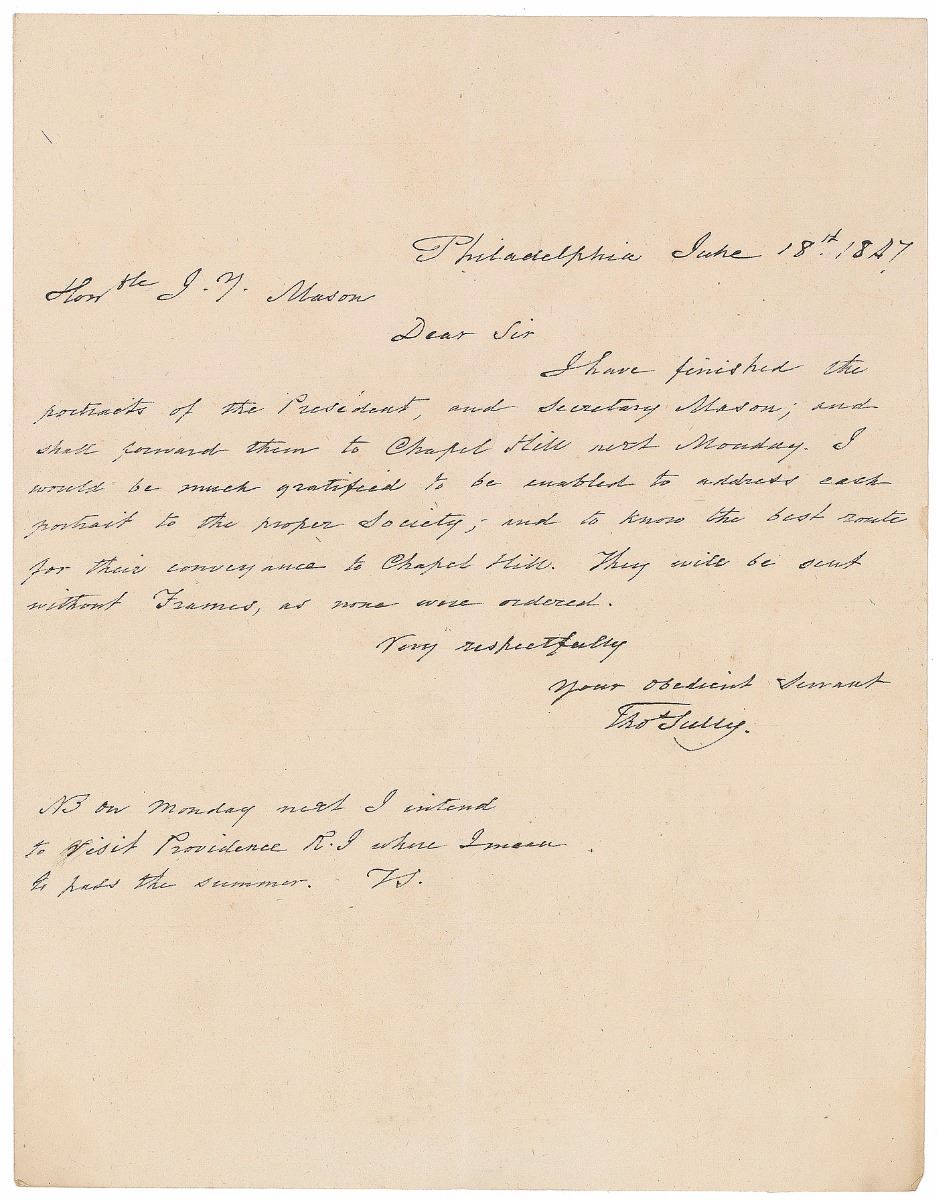 Philadelphia June 18th. 1847
Honble J. Y. Mason
Dear Sir
I have finished the
portraits of the President, and Secretary Mason; and
shall forward them to Chapel Hill next Monday. I
would be much gratified to be enabled to address each
portrait to the proper Society; and to know the best route
for their conveyance to Chapel Hill. They will be sent
without Frames, as none were ordered.
Very respectfully
Your obedient Servant
Thos Sully.
NB on Monday next I intend
to Visit Providence R.I where I mean
to pass the summer. TS.